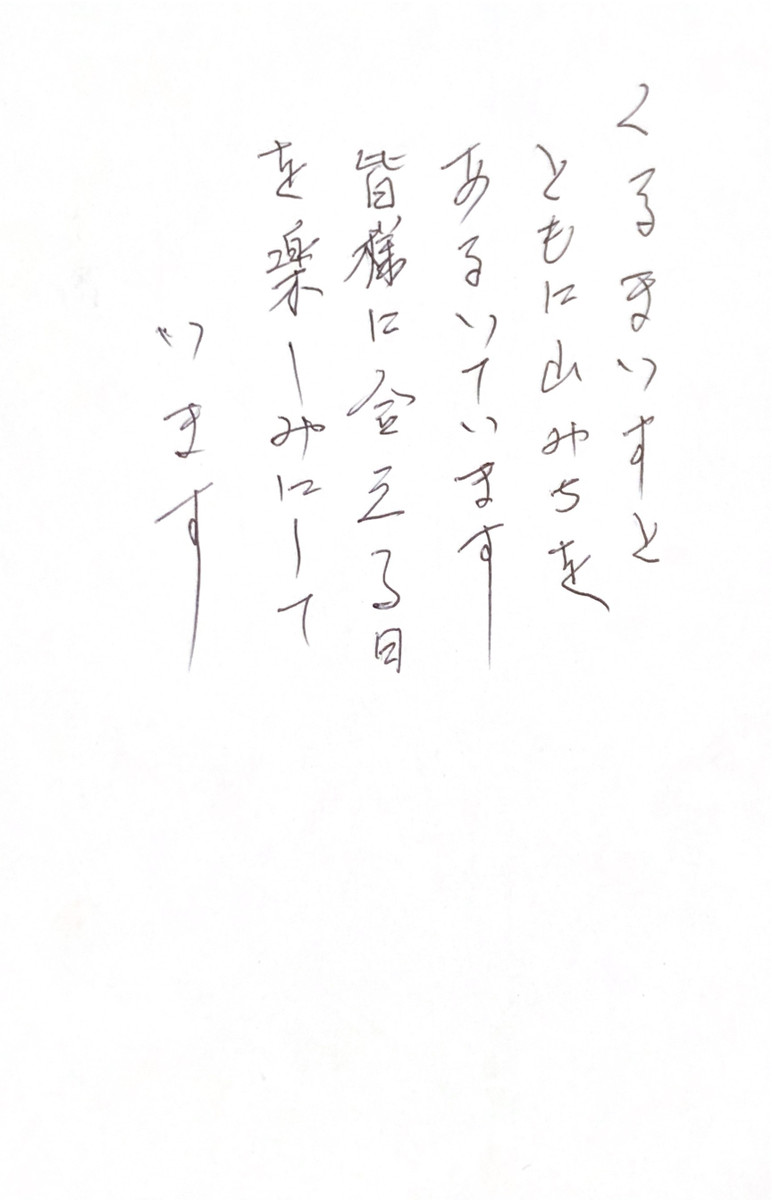 くるまいすと
ともに山みちを
あるいています
皆様に会える日
を楽しみにして
います